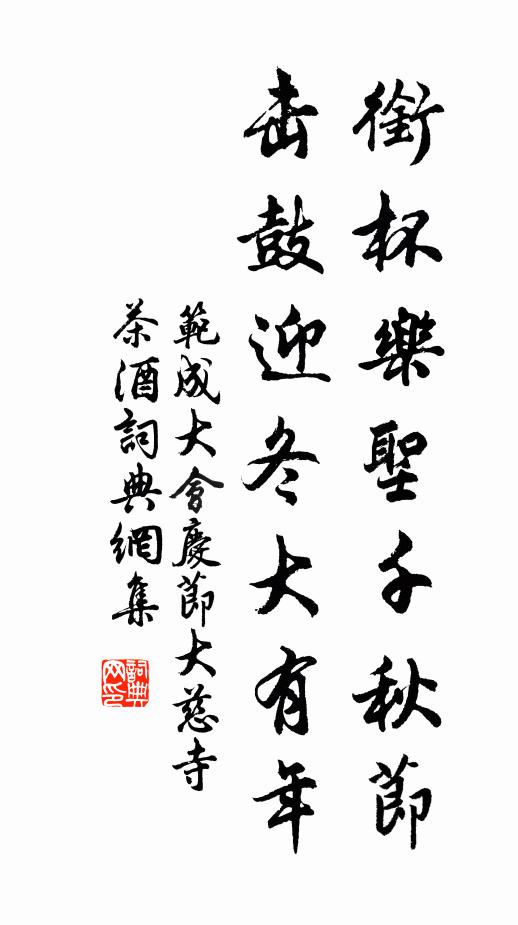 銜杯樂聖千秋節
击鼓迎冬大有年
範成大會慶節大慈寺
茶酒詞典網集
詞典网印